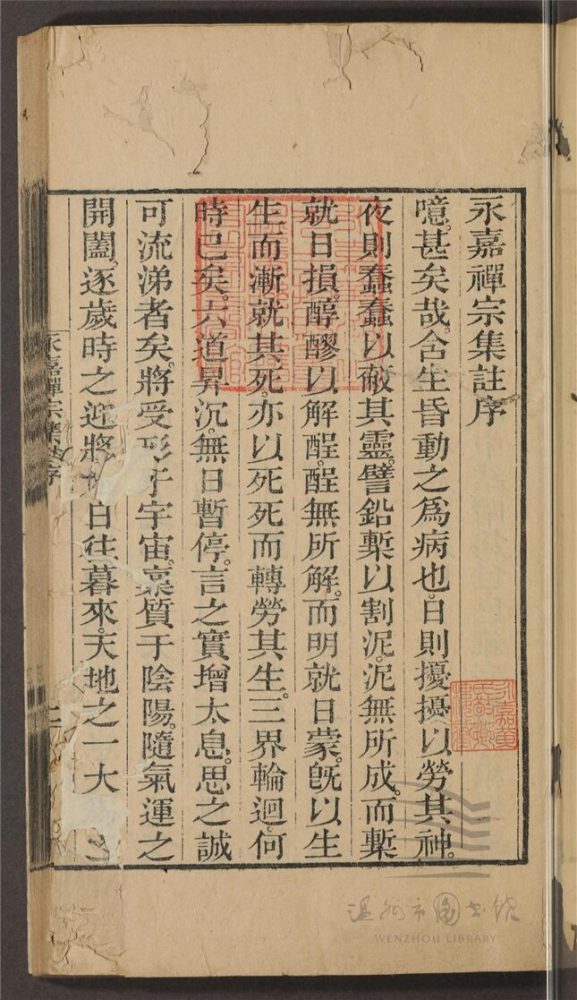 永嘉禪宗集註序
噫。甚矣哉。含生昏動之爲病也。日則擾擾以勞其神。
夜則蠢蠢以蔽其靈。譬鉛槧以割泥。泥無所成。而槧
就日損。醇醪以解酲。酲無所解。而明就日蒙。旣以生
生而漸就其死。亦以死死而轉勞其生。三界輪迴。何
時已矣。六道昇沉。無日暫停。言之實增太息。思之誠
可流涕者矣。將受形于宇宙。稟質于陰陽。隨氣運之
開闔。逐歲時之迎將。白往暮來。天地之一大
永嘉禪宗集註序
一
永嘉黃
温州市圖書館
WENZHOU LIBRARY